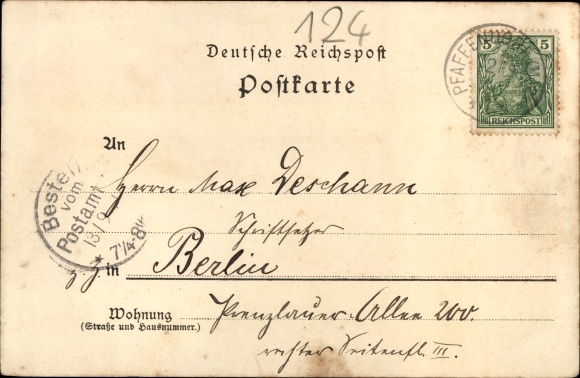 124
Deutsche Reichspost
Postkarte
5 5
REICHSPOST
PFAFFEN
An
Herrn Max Deschann
Schriftsetzer
z. Z. in Berlin
Wohnung
(Straße und Hausnummer.)
Prenzlauer-Allee 200.
rechter Seitenfl. III.
Bestellt
vom
Postamt
13/9
7¼-8½